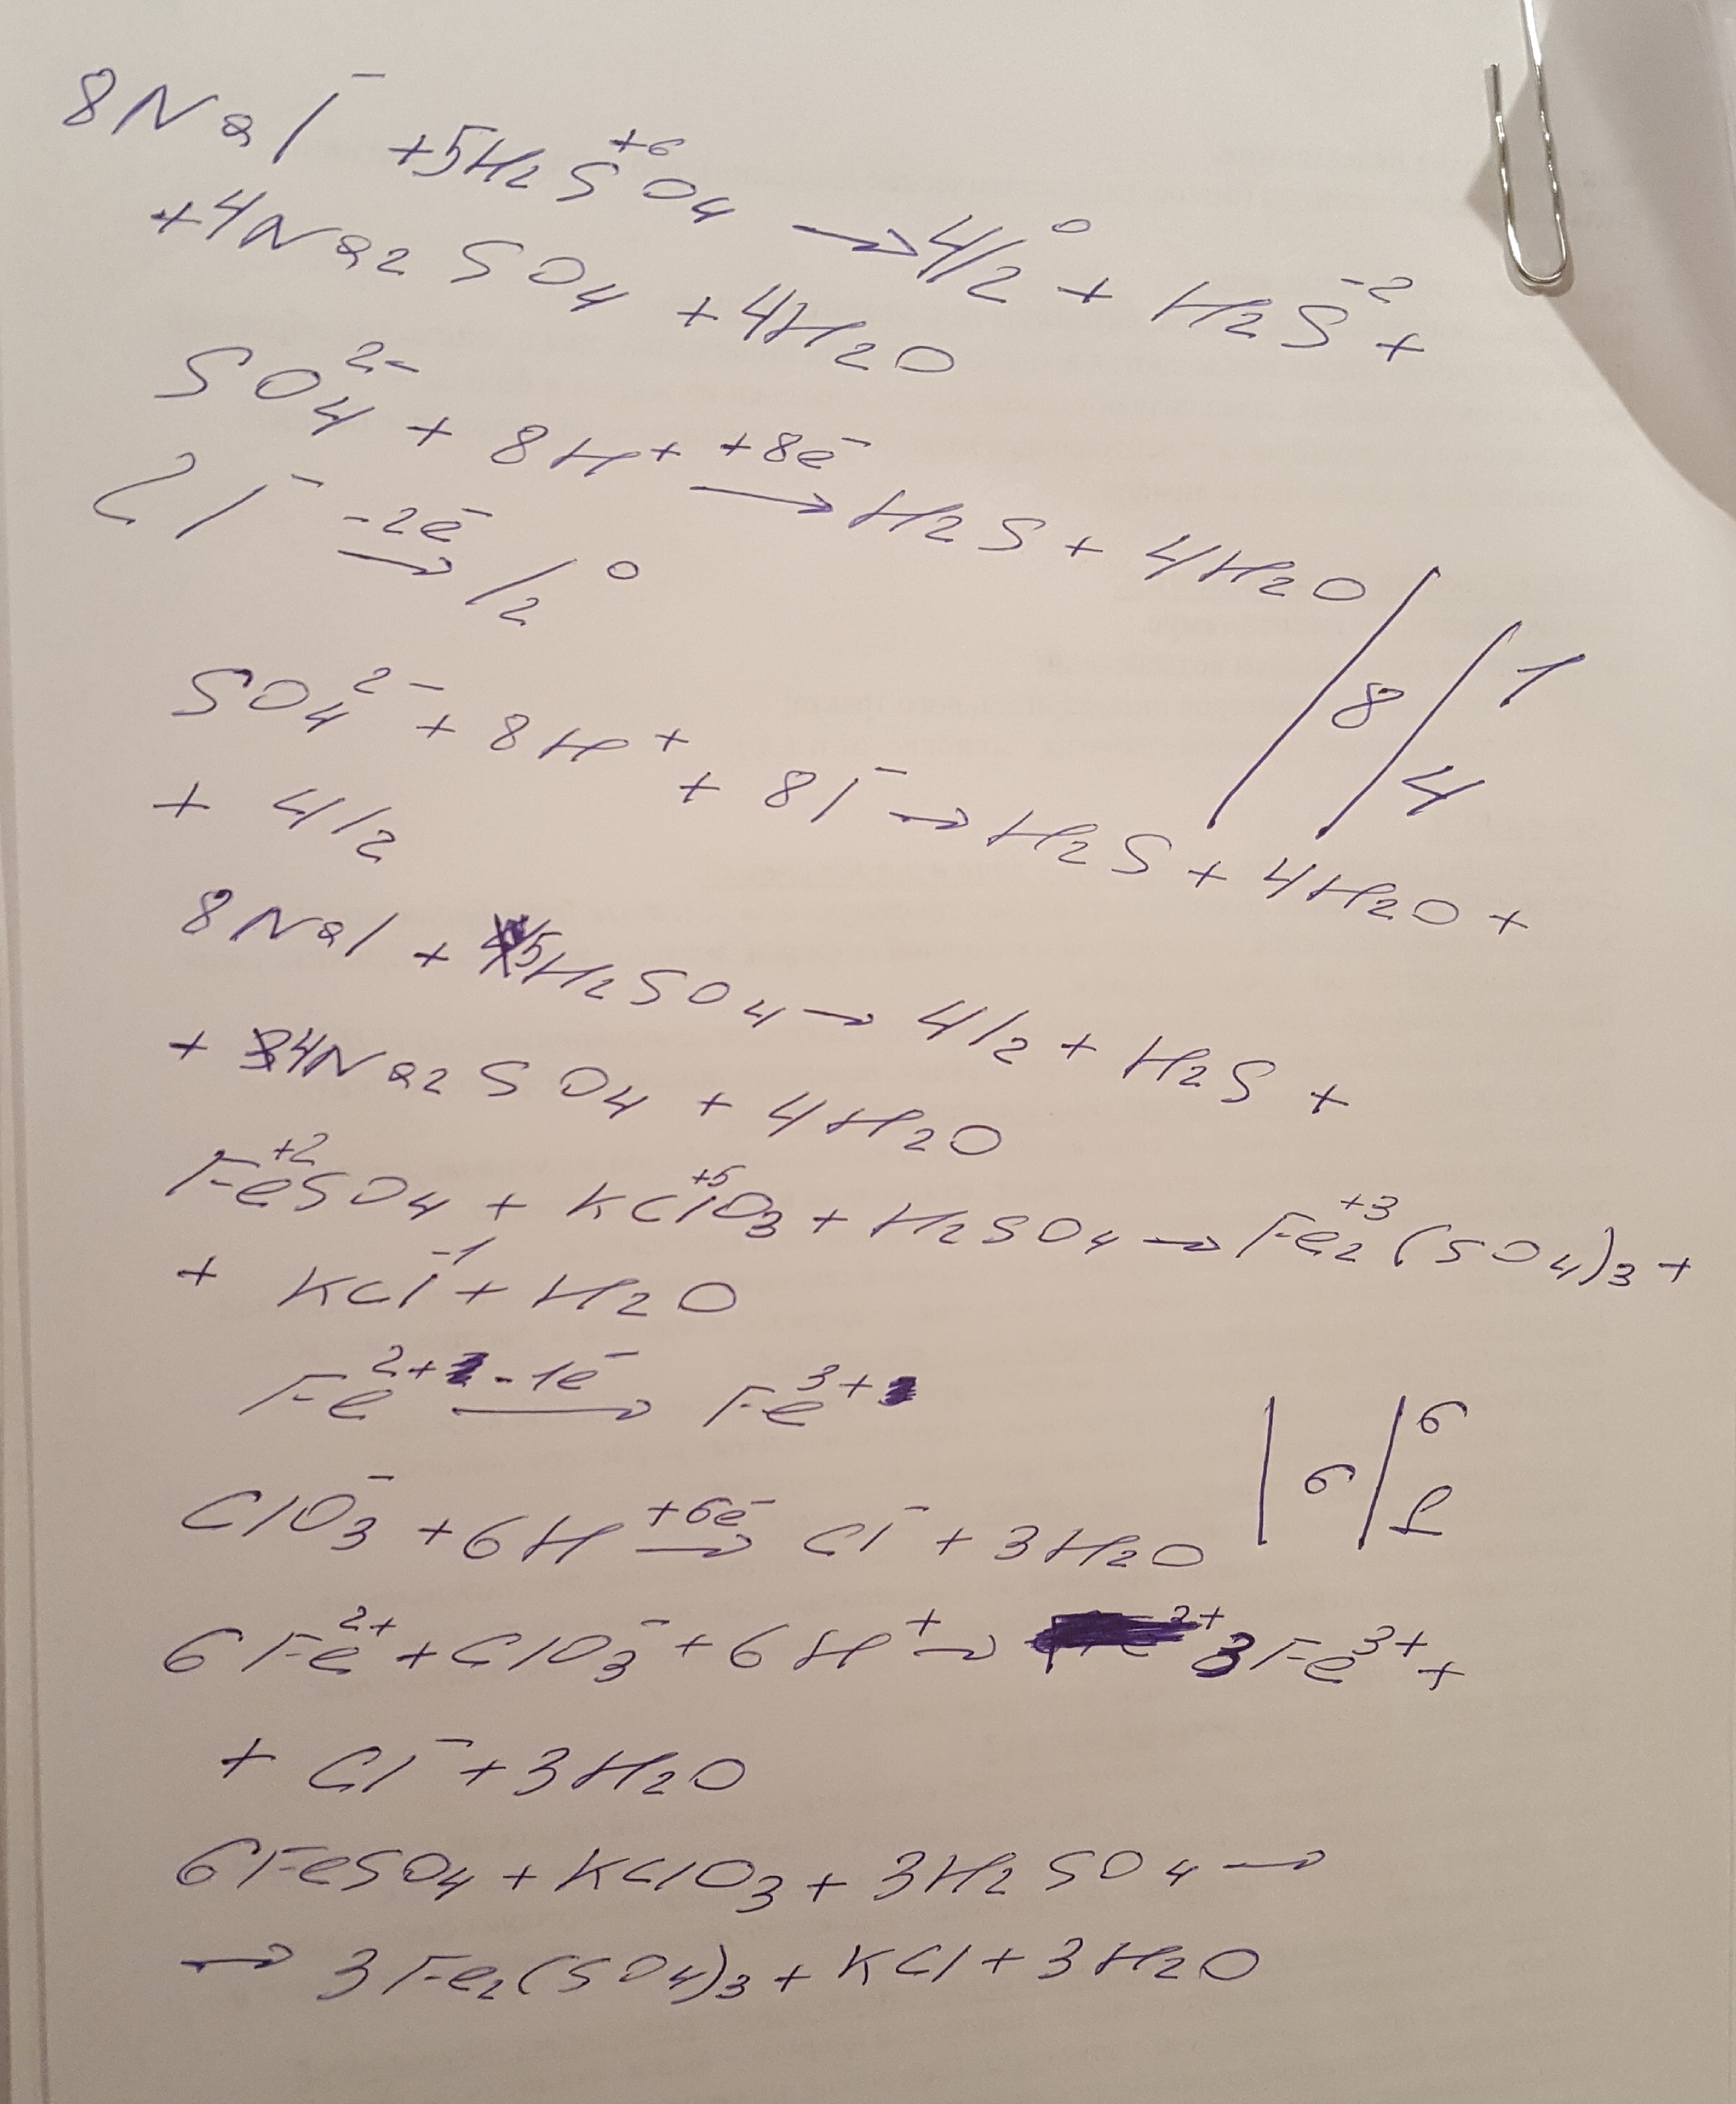 8NaI⁻ + 5H₂S⁺⁶O₄ → 4I₂⁰ + H₂S⁻² +
+ 4Na₂SO₄ + 4H₂O
SO₄²⁻ + 8H⁺ +8e⁻ → H₂S + 4H₂O | 8 | 1
2I⁻ -2e⁻ → I₂⁰ | 4
SO₄²⁻ + 8H⁺ + 8I⁻ → H₂S + 4H₂O +
+ 4I₂
8NaI + 5H₂SO₄ → 4I₂ + H₂S +
+ 4Na₂SO₄ + 4H₂O
Fe⁺²SO₄ + KCl⁺⁵O₃ + H₂SO₄ → Fe₂⁺³(SO₄)₃ +
+ KCl⁻¹ + H₂O
Fe²⁺ -1e⁻ → Fe³⁺ | 6 | 6
ClO₃⁻ + 6H +6e⁻ → Cl⁻ + 3H₂O | 1
6Fe²⁺ + ClO₃⁻ + 6H⁺ → 3Fe³⁺ +
+ Cl⁻ + 3H₂O
6FeSO₄ + KClO₃ + 3H₂SO₄ →
→ 3Fe₂(SO₄)₃ + KCl + 3H₂O